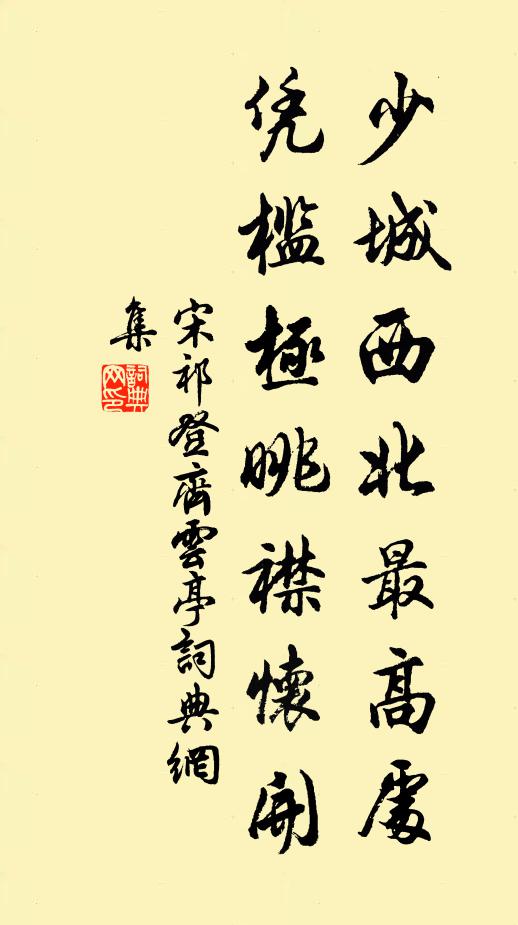 少城西北最高處
凭檻極眺襟懷開
宋祁登齊雲亭詞典網
集
詞典
网印